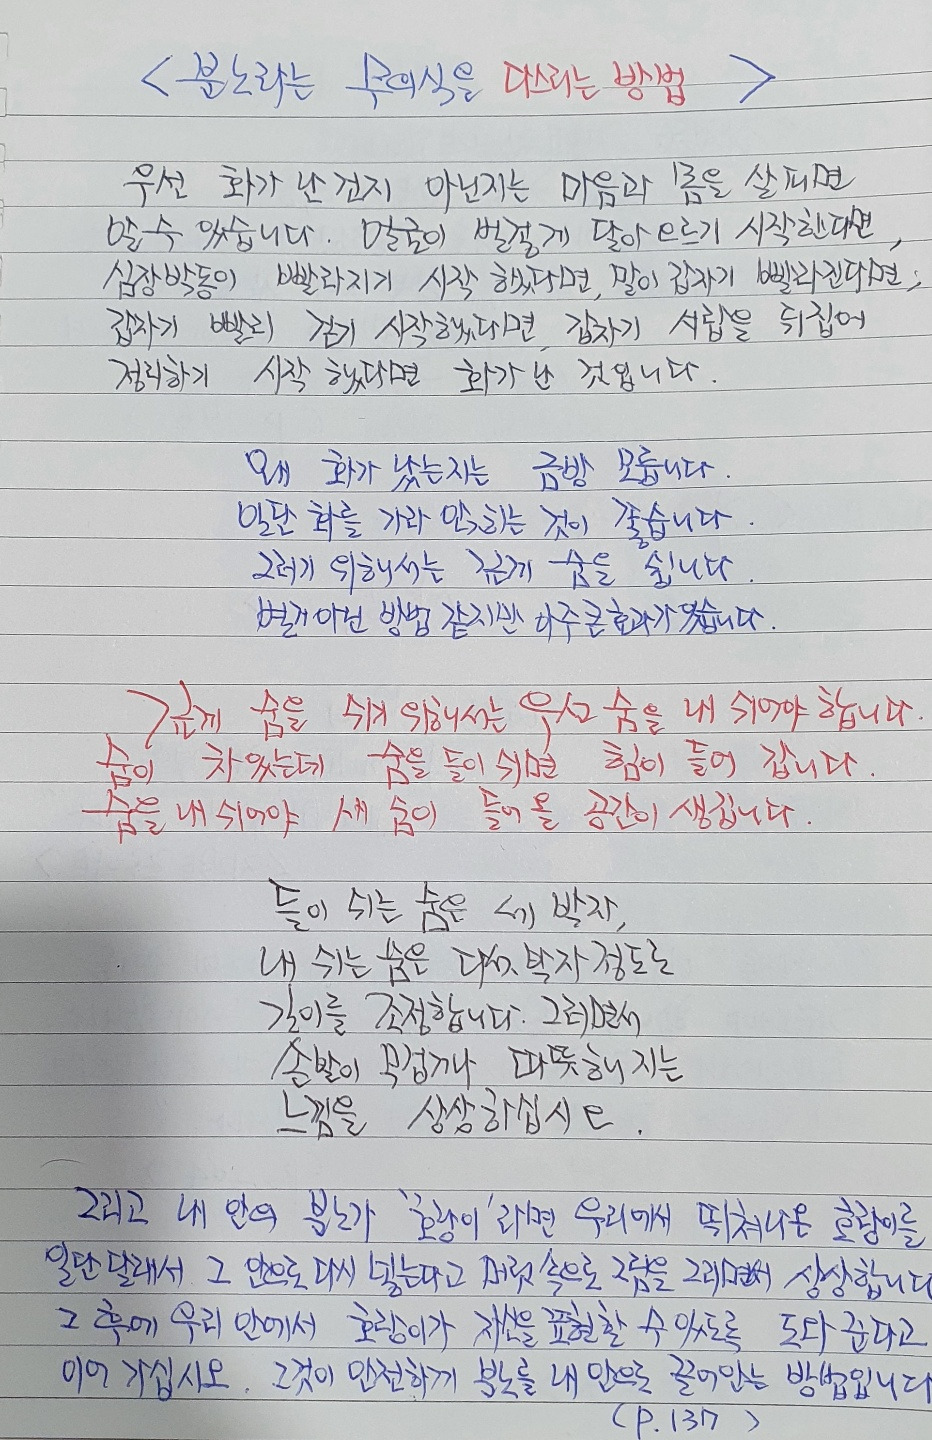 <분노라는 무의식을 다스리는 방법>
우선 화가 난 건지 아닌지는 마음과 몸을 살피면
알 수 있습니다. 얼굴이 벌겋게 달아 오르기 시작한다면,
심장박동이 빨라지기 시작 했다면, 말이 갑자기 빨라진다면,
갑자기 빨리 걷기 시작했다면, 갑자기 서랍을 뒤집어
정리하기 시작 했다면 화가 난 것입니다.
왜 화가 났는지는 금방 모릅니다.
일단 화를 가라 앉히는 것이 좋습니다.
그러기 위해서는 깊게 숨을 쉽니다.
별거 아닌 방법 같지만 아주 큰 효과가 있습니다.
깊게 숨을 쉬기 위해서는 우선 숨을 내 쉬어야 합니다.
숨이 차 있는데 숨을 들이 쉬면 힘이 들어 갑니다.
숨을 내 쉬어야 새 숨이 들어 올 공간이 생깁니다.
들이 쉬는 숨은 세 박자,
내 쉬는 숨은 다섯 박자 정도로
길이를 조정합니다. 그러면서
손발이 묵겁꺼나 따뜻해 지는
느낌을 상상하십시오.
그리고 내 안의 분노가 '호랑이'라면 우리에서 뛰쳐나온 호랑이를
일단 달래서 그 안으로 다시 넣는다고 머릿 속으로 그림을 그리면서 상상합니다
그 후에 우리 안에서 호랑이가 자신을 표현할 수 있도록 도와 준다고
이어 가십시오. 그것이 안전하게 분노를 내 안으로 끌어안는 방법입니다
(p.137)